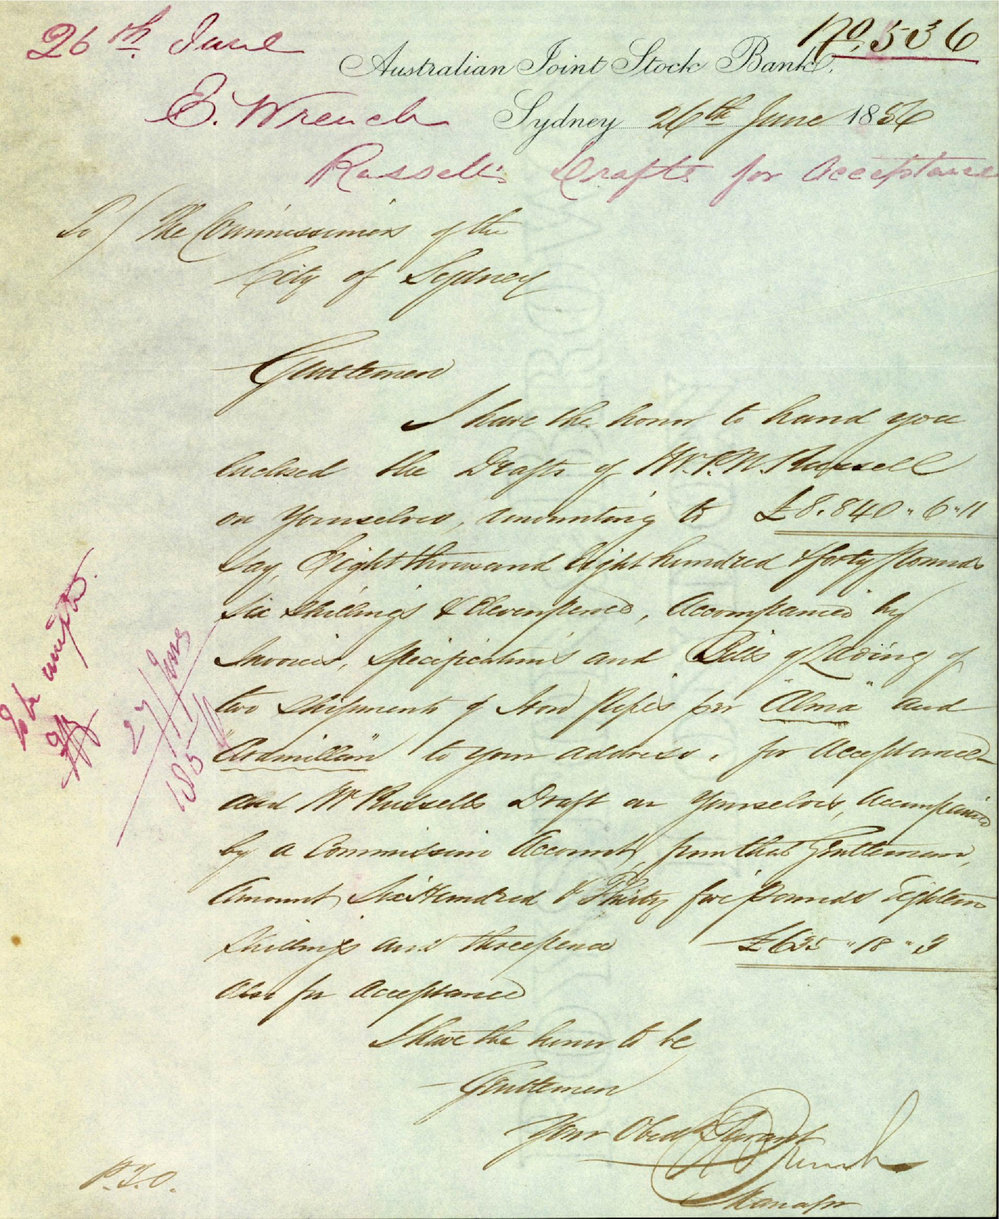 26th June
No. 536
Australian Joint Stock Bank,
E. Wrench
Sydney 26th June 1856
Russell's Drafts for Acceptance
To/ The Commissioners of the
City of Sydney
Gentlemen
I have the honor to hand you
enclosed the Drafts of Mr. P. N. Russell
on yourselves, amounting to £8.840 " 6 " 11
say, Eight thousand Eight hundred & forty pounds
six shillings & elevenpence, accompanied by
Invoices, Specifications and Bills of Lading of
two shipments of Iron Pipes per "Alma" and
"Ardmillan" to your address, for Acceptance
and Mr Russells Draft on yourselves, accompanied
by a Commission Account, from that Gentleman,
amount Six Hundred & Thirty five pounds Eighteen
shillings and threepence £635 " 18 " 3
also for acceptance
I have the honor to be
Gentlemen
Your Obedt Servant
Wrench
Manager
27 June
1856
P.T.O.